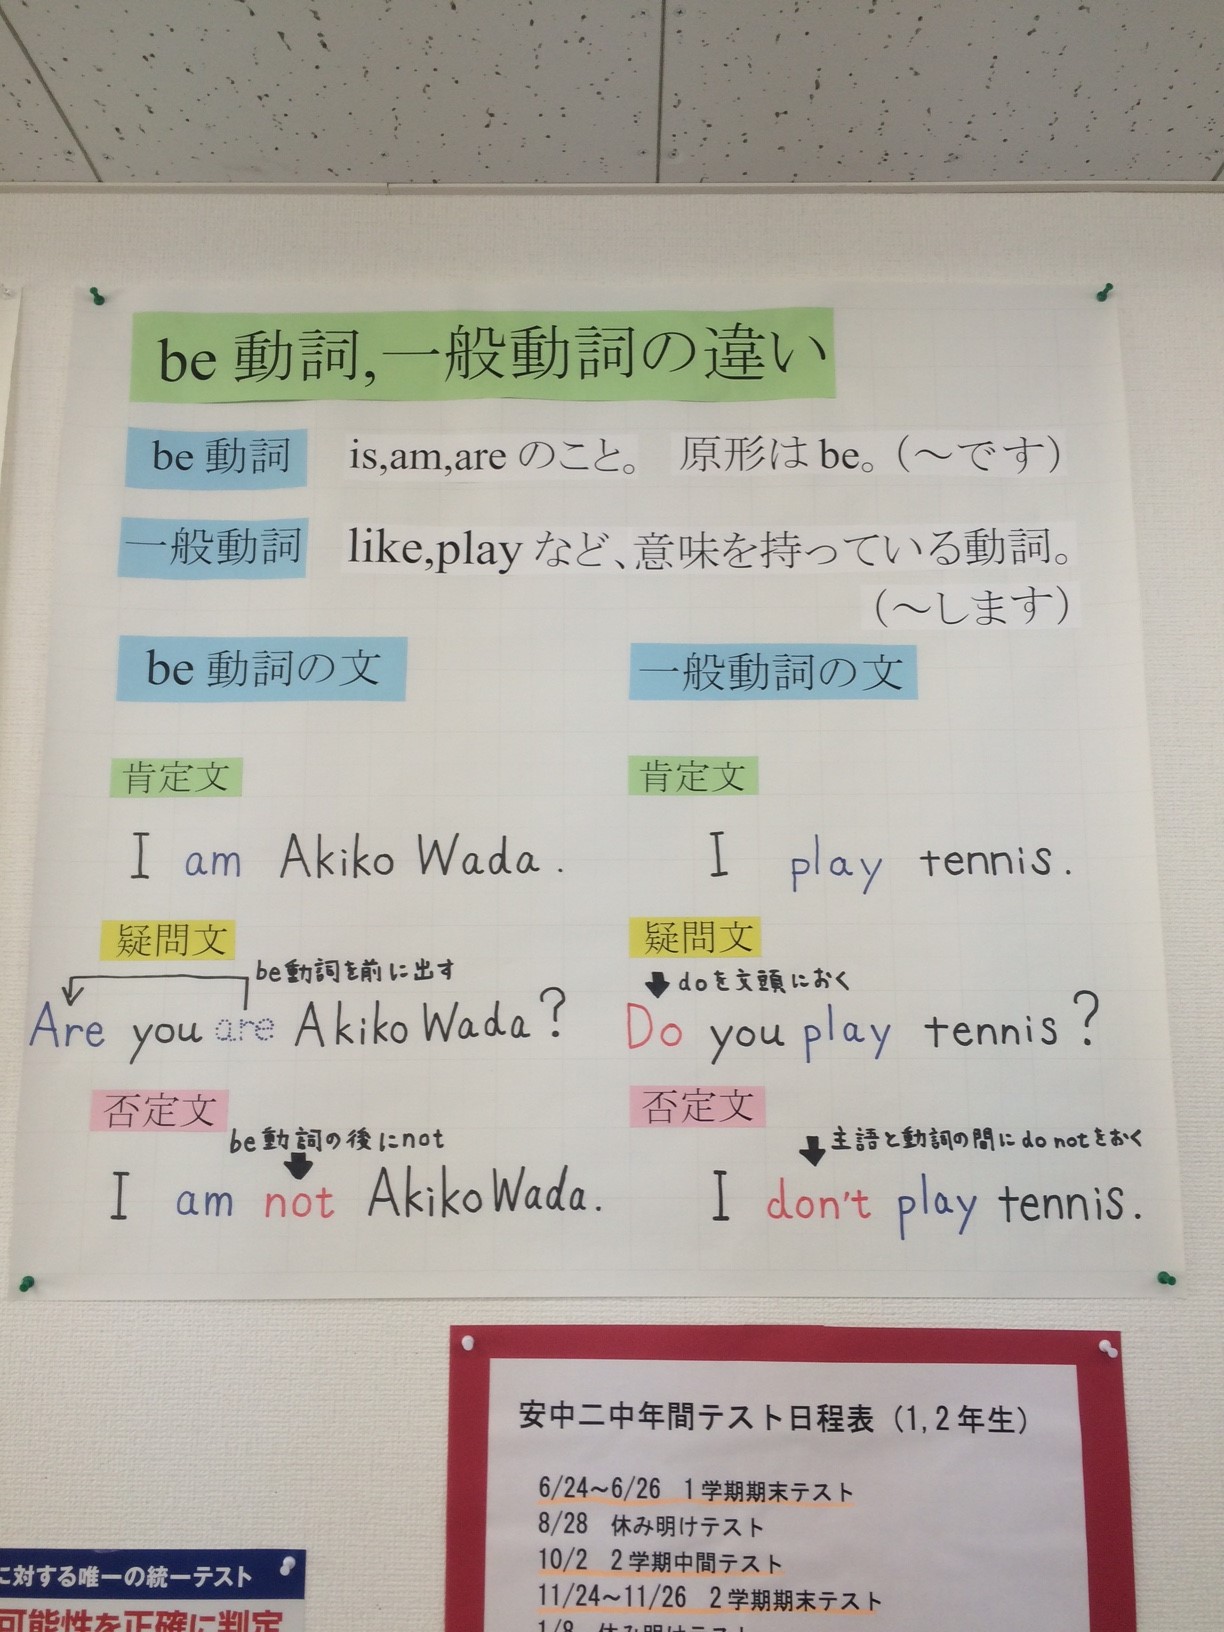 be動詞,一般動詞の違い
be動詞 is,am,areのこと。 原形はbe。(～です)
一般動詞 like,playなど、意味を持っている動詞。
(～します)
be動詞の文
肯定文
I am Akiko Wada.
疑問文
be動詞を前に出す
Are you are Akiko Wada?
否定文
be動詞の後にnot
I am not Akiko Wada.
一般動詞の文
肯定文
I play tennis.
疑問文
doを文頭におく
Do you play tennis?
否定文
主語と動詞の間にdo notをおく
I don't play tennis.
安中二中年間テスト日程表(1,2年生)
6/24～6/26 1学期期末テスト
8/28 休み明けテスト
10/2 2学期中間テスト
11/24～11/26 2学期期末テスト
1/8 休み明けテスト
に対する唯一の統一テスト
可能性を正確に判定